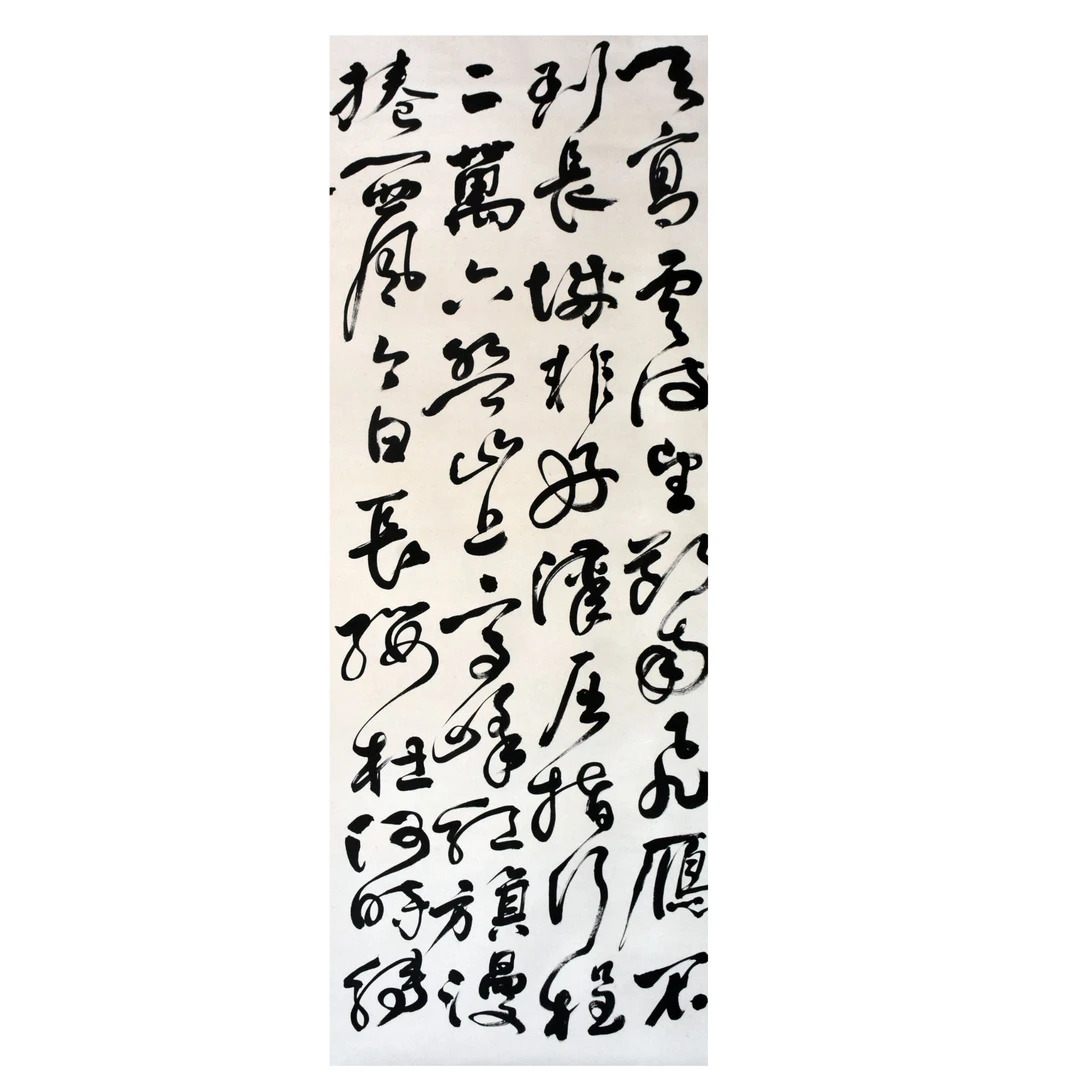 天高雲淡望斷南飛雁不
到長城非好漢屈指行程
二萬六盤山上高峰紅旗漫
捲西風今日長纓在何時縛